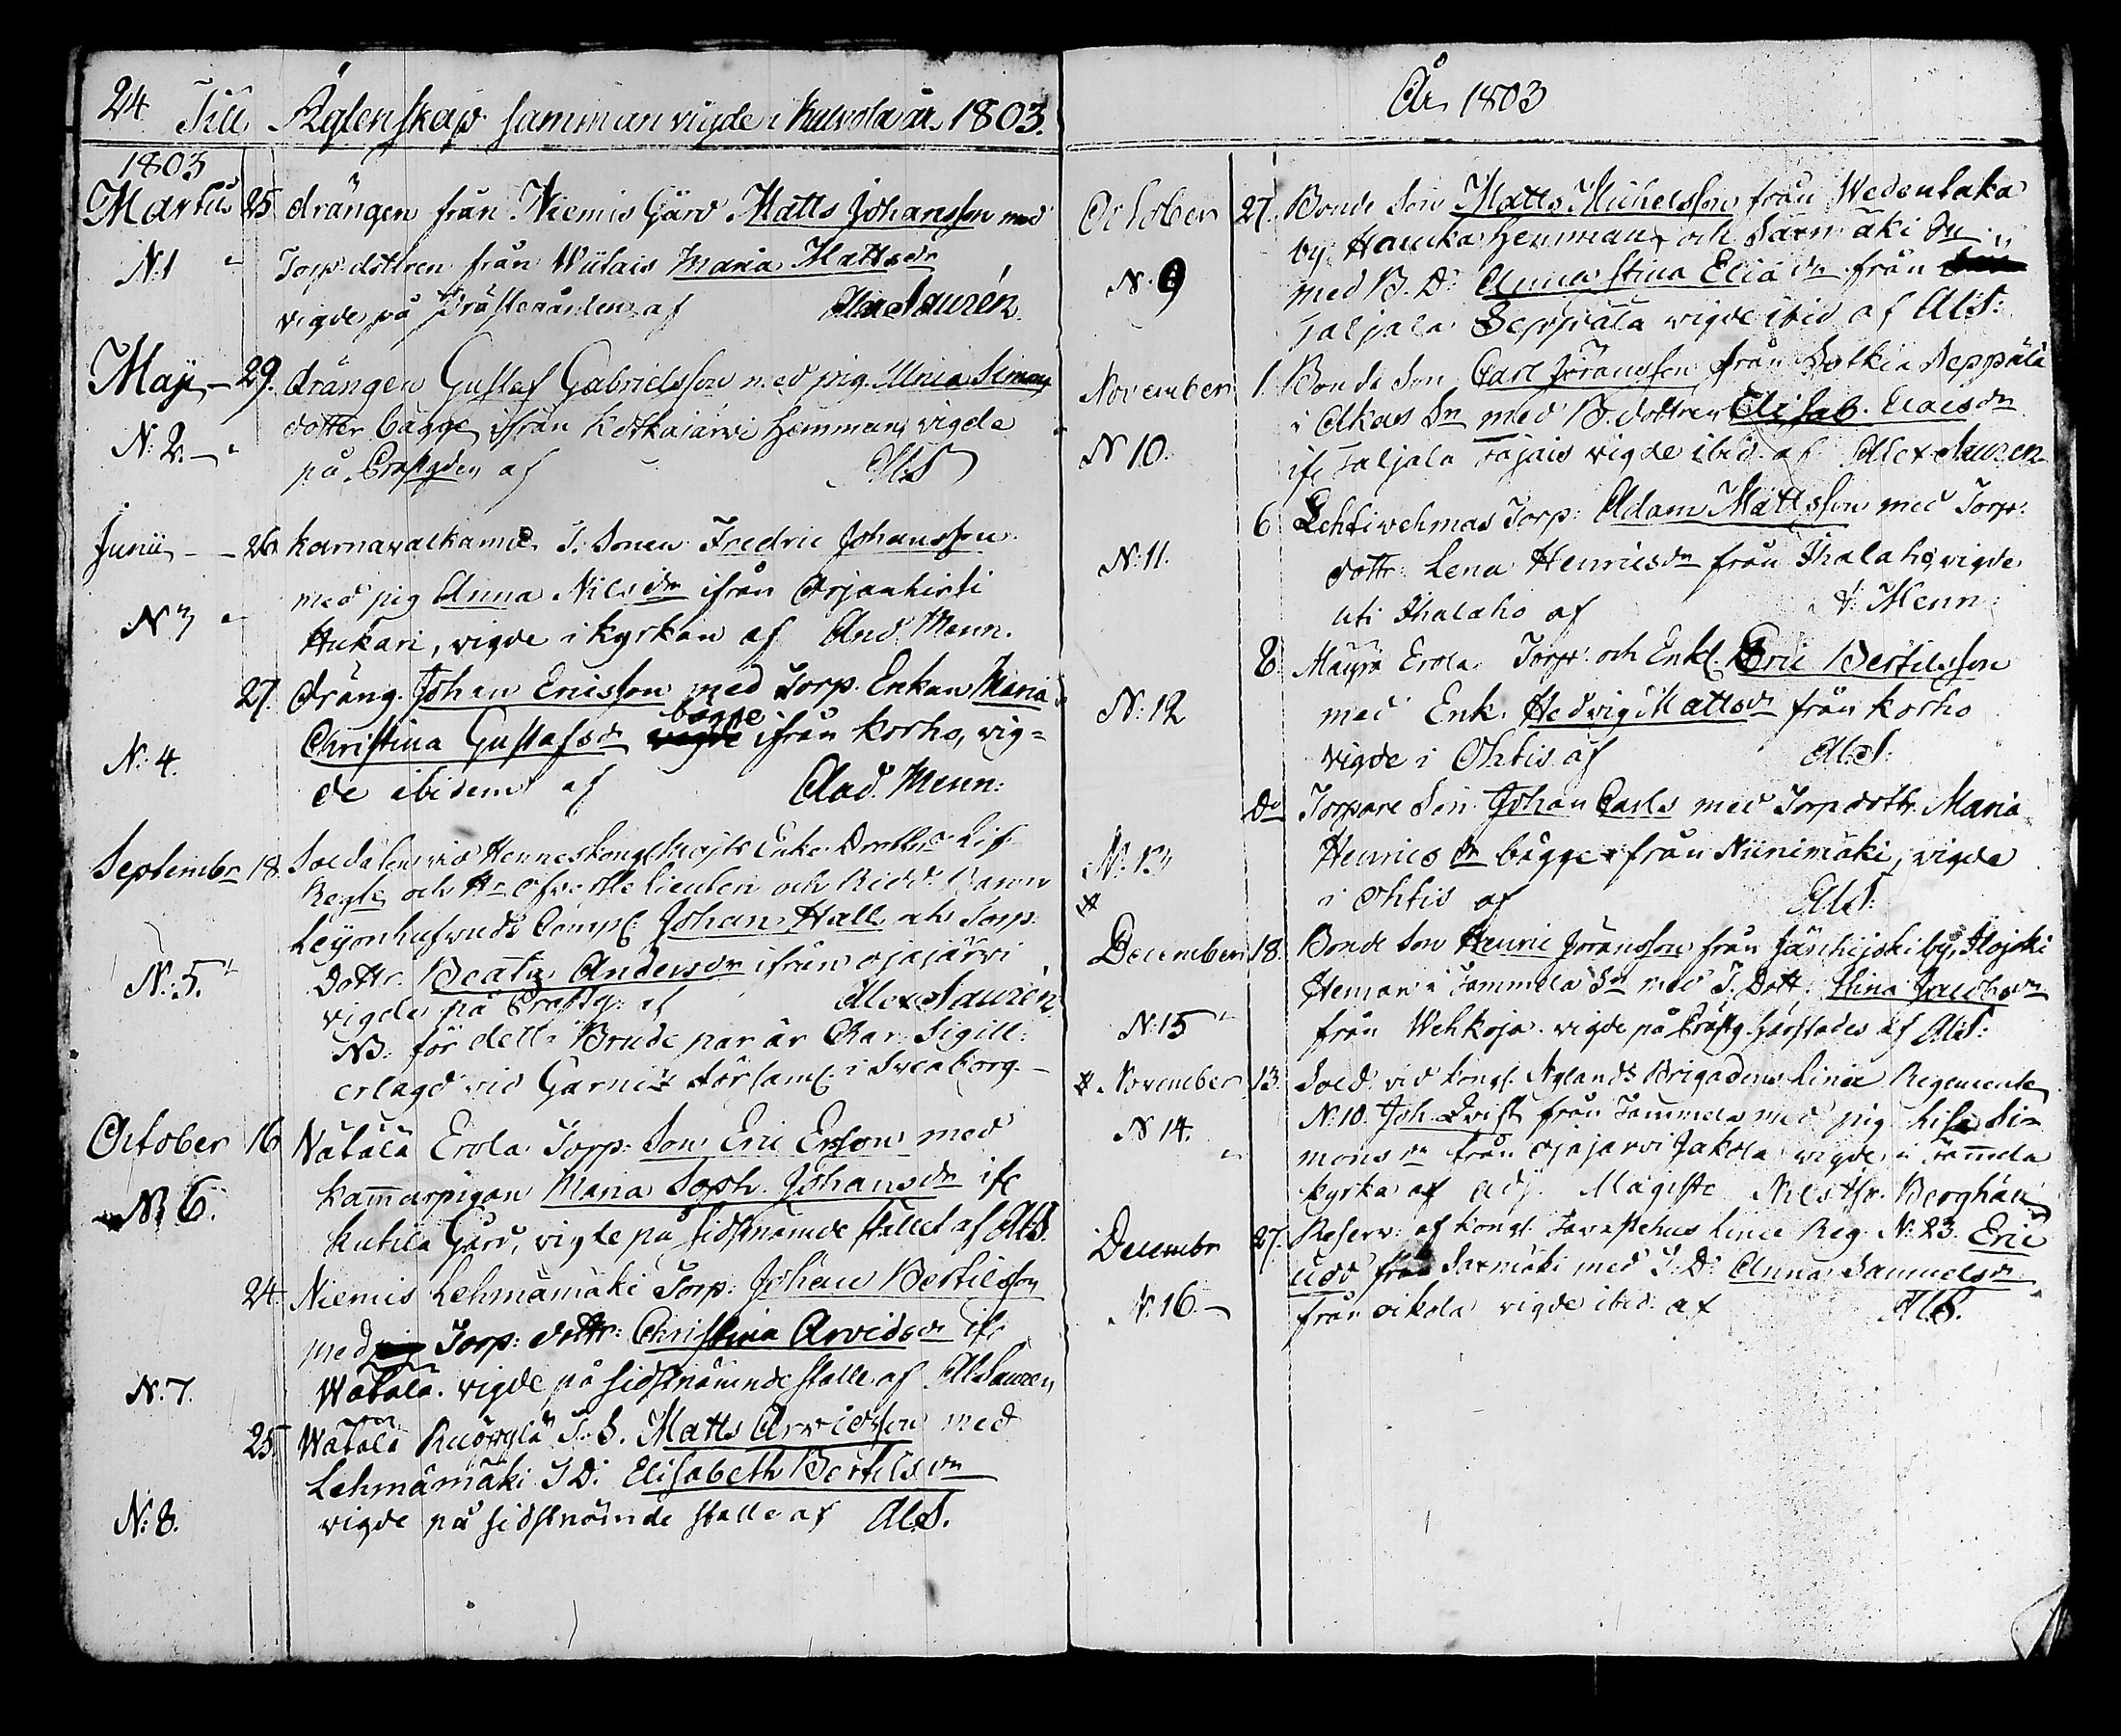 24 Till Äglenskap sammanvigde i Kalvola år 1803.
1803
Martii 25 drängen från Niemis Gård Matts Johansson med
N:1 Torp. dottren från Wiilais Maria Matts dr
vigde på Prästegården af Alex Laurén
Maji 29. drängen Gustaf Gabrielsson med pig. Maria Simons
N: 2. dotter bägge ifrån Kotkajärvi Hemman, vigde
på Prästgden af Al.L
Junii 26 Karnavalkamd T. Sonen Fredric Johansson
med pig Anna Nils dr ifrån Orjanhirti
N 3 Hukari, vigde i kyrkan af And. Menn.
27. dräng. Johan Ericsson med Torp. Enkan Maria
bägge
Christina Gustafs dr ifrån Korho, vig=
N: 4. de ibidem af And. Menn:
Septembr 18. Soldaten vid Hennes Kongl Majts Enke Drottn Lif
Regte och Hr Öfverste Lieuten och Ridd. Baron
Leyonhufvuds Comp: Johan Hall och Torp.
N: 5. Dottr. Beata Anders dr ifrån Ojajärvi
vigde på Prästg: af Alex Laurén
NB. för detta Brude par är Char. Sigill.
erlagd vid Garniz Församl: i Sveaborg.
October 16 Wätälä Erola Torp: Son Eric Erson med
Kammarpigan Maria Soph. Johans dr ifr
N: 6. Kutila Gård, vigde på sidstnämde stället af Al.L.
24. Niemis Lehmämäki Torp: Johan Bertilsson
med Torp: dottr: Christina Arvids dr ifr
N: 7. Wätälä. vigde på sidstnämnde ställe af Al Lauren
25. Wätälä T. S. Matts Arvidsson med
Lehmämäki T D: Elisabeth Bertils dr
N: 8. vigde på sidstnämde ställe af Al.L.
År 1803
October 27. Bonde Son Matts Michelsson från Wedentaka
by Haucka Hemman och Sarmäki Sn
N. 9 med B. D: Anna Stina Elia dr från
Taljala Seppälä vigde ibid af Al.L:
November 1. Bonde Son Carl Jöransson från Sotkia Seppälä
i Akas Sn med B. dottren Elisab. Elaes dr
N 10. ifr Taljala Tajais vigde ibid. af Alex Lauren
6 Lehtivehmas Torp: Adam Mattsson med Torp:
N: 11. dottr: Lena Henrics dr från Ihalaho, vigde
uti Ihalaho af A: Menn:
8. Erola Torp: och Enkl. Eric Bertilsson
N: 12 med Enk. Hedvig Matts dr från Korho
vigde i Ohtis af Al.L:
Do Torpare Son Johan Carls med Torp dottr. Maria
N: 13 Henrics dr bägge från Niinimäki, vigde
i Ohtis af Al.L:
December 18. Bonde Son Henric Jöransson från by,
Heman i Tammela Sn med T. Dott. Stina Jacobs dr
N: 15 från Wehkoja vigde på Prästg. af Al.L:
November 13. Sold. vid Kongl. Nylands Brigadens Linea Regemente
N: 14. N: 10. Joh. Qvist från Tammela med pig Lisa Si-
mons dr från Ojajärvi Jakola vigde i Tammela
kyrka af adj. Magister Berghäll
Decembr 27. Reserv: af Kongl. Tavastehus Linie Reg. N: 23. Eric
Udd från Sarmäki med T. D: Anna Samuels dr
N: 16 från Sikola vigde ibid. af Al.L.